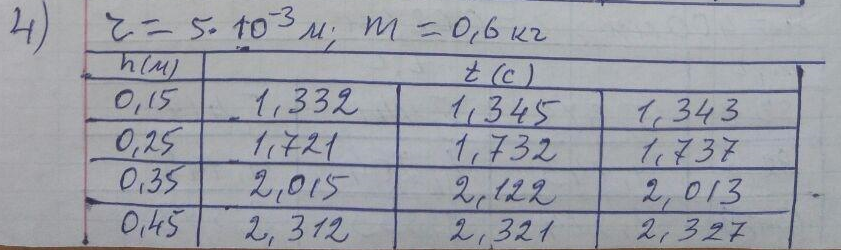 4) r = 5·10⁻³ м; m = 0,6 кг
h(м) t(c)
0,15 1,332 1,345 1,343
0,25 1,721 1,732 1,737
0,35 2,015 2,122 2,013
0,45 2,312 2,321 2,327